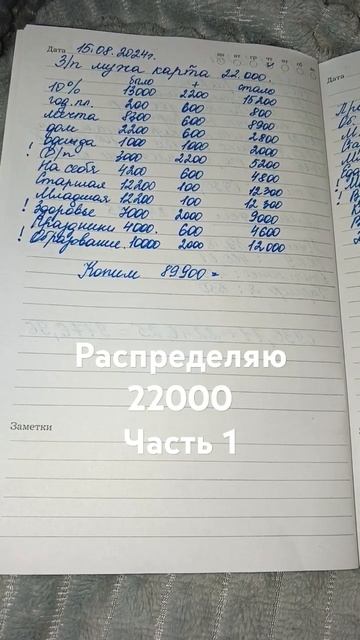 Дата 15.08.2024г. пн вт ср чт пт сб
З/п мужа карта 22.000.
было + стало
10% 13000 2200 15200
год.пл. 200 600 800
мечта 8300 600 8900
дом 2200 600 2800
Одежда 1000 1000 2000
! В/п 3000 2200 5200
На себя 4200 600 4800
Старшая 12200 100 12300
Младшая 12200 100 12300
! Здоровье 7000 2000 9000
Праздники 4000. 600 4600
! Образование 10000 2000 12000
Копим 89900=
Распределяю
22000
Часть 1
Заметки
Дата